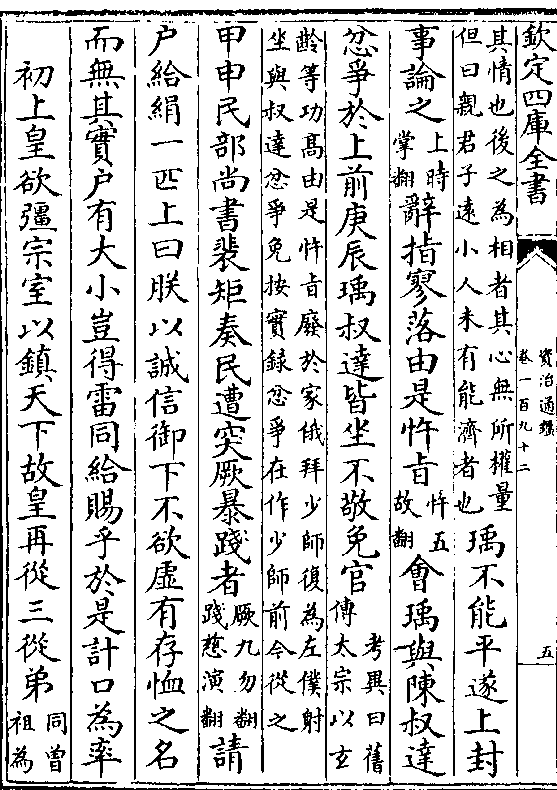 欽定四庫全書
資治通鑑
卷一百九十二
五
其情也後之為相者其心無所權量
但曰親君子遠小人未有能濟者也
瑀不能平遂上封
事論之
上時
掌翻
辭指寥落由是忤旨
忤五
故翻
會瑀與陳叔達
忿爭於上前庚辰瑀叔達皆坐不敬免官
考異曰舊
傳太宗以玄
齡等功髙由是忤旨廢於家俄拜少師復為左僕射
坐與叔達忿爭免按實録忿爭在作少師前今從之
甲申民部尚書裴矩奏民遭突厥暴踐者
厥九勿翻
踐慈演翻
請
户給絹一匹上曰朕以誠信御下不欲虚有存恤之名
而無其實户有大小豈得雷同給賜乎於是計口為率
初上皇欲彊宗室以鎮天下故皇再從三從弟
同曾
祖為